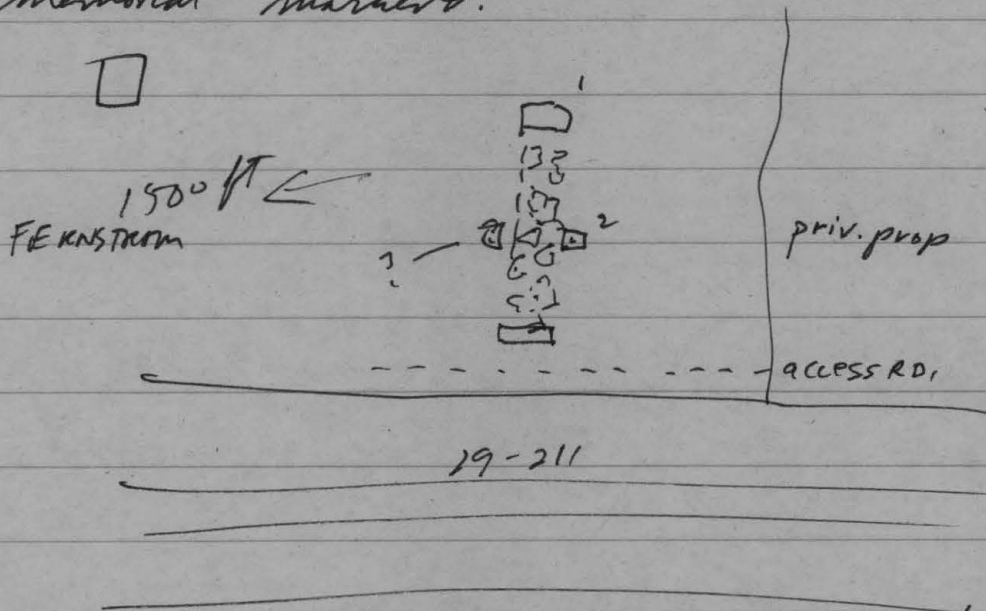 memorial markers.
1
1500 ft
FERNSTROM
?
2
priv. prop
access RD.
29-211